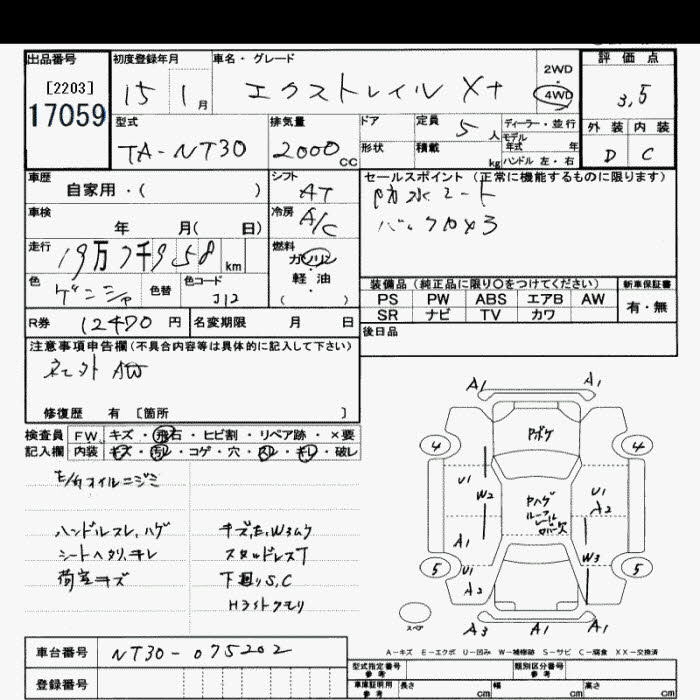 出品番号
[2203]
17059
初度登録年月
15 1月
車名・グレード
エクストレイル Xt
2WD
4WD
評価点
3,5
外装 内装
D C
型式
TA-NT30
排気量
2000cc
ドア
形状
定員
5人
積載
kg
ディーラー・並行
モデル
年式 年
ハンドル 左・右
車歴
自家用・( )
シフト
AT
セールスポイント(正常に機能するものに限ります)
防水シート
車検
年 月( 日)
冷房
A/C
走行
19万7千958km
燃料
ガソリン
・
軽油
( )
色
色替
色コード
J12
装備品(純正品に限り〇をつけてください)
新車保証書
PS PW ABS エアB AW
有・無
SR ナビ TV カワ
R券 12470円
名変期限 月 日
後日品
注意事項申告欄(不具合内容等は具体的に記入して下さい)
AW
修復歴 有 [箇所 ]
検査員
記入欄
FW. キズ・飛石・ヒビ割・リペア跡・×要
内装 キズ・汚レ・コゲ・穴・スレ・キレ・破レ
E/Gオイルニジミ
ハンドルスレ,ハゲ
シートヘタリ,キレ
荷室キズ
キズ,E,W3ムク
スタッドレスT
下廻りS,C
A1 A1
Pボケ
4 4
U1
W2
Pハゲ
ルーフ
レール
カバー欠
U1
A2
A1
W3
5
U1
A2
5
スペア
A3 A1 A1
A-キズ E-エクボ U-凹み W-補修跡 S-サビ C-腐食 XX-交換済
車台番号
NT30-075202
登録番号
型式指定番号
参考
類別区分番号
参考
車庫証明用
参考
長さ cm 幅 cm 高さ cm